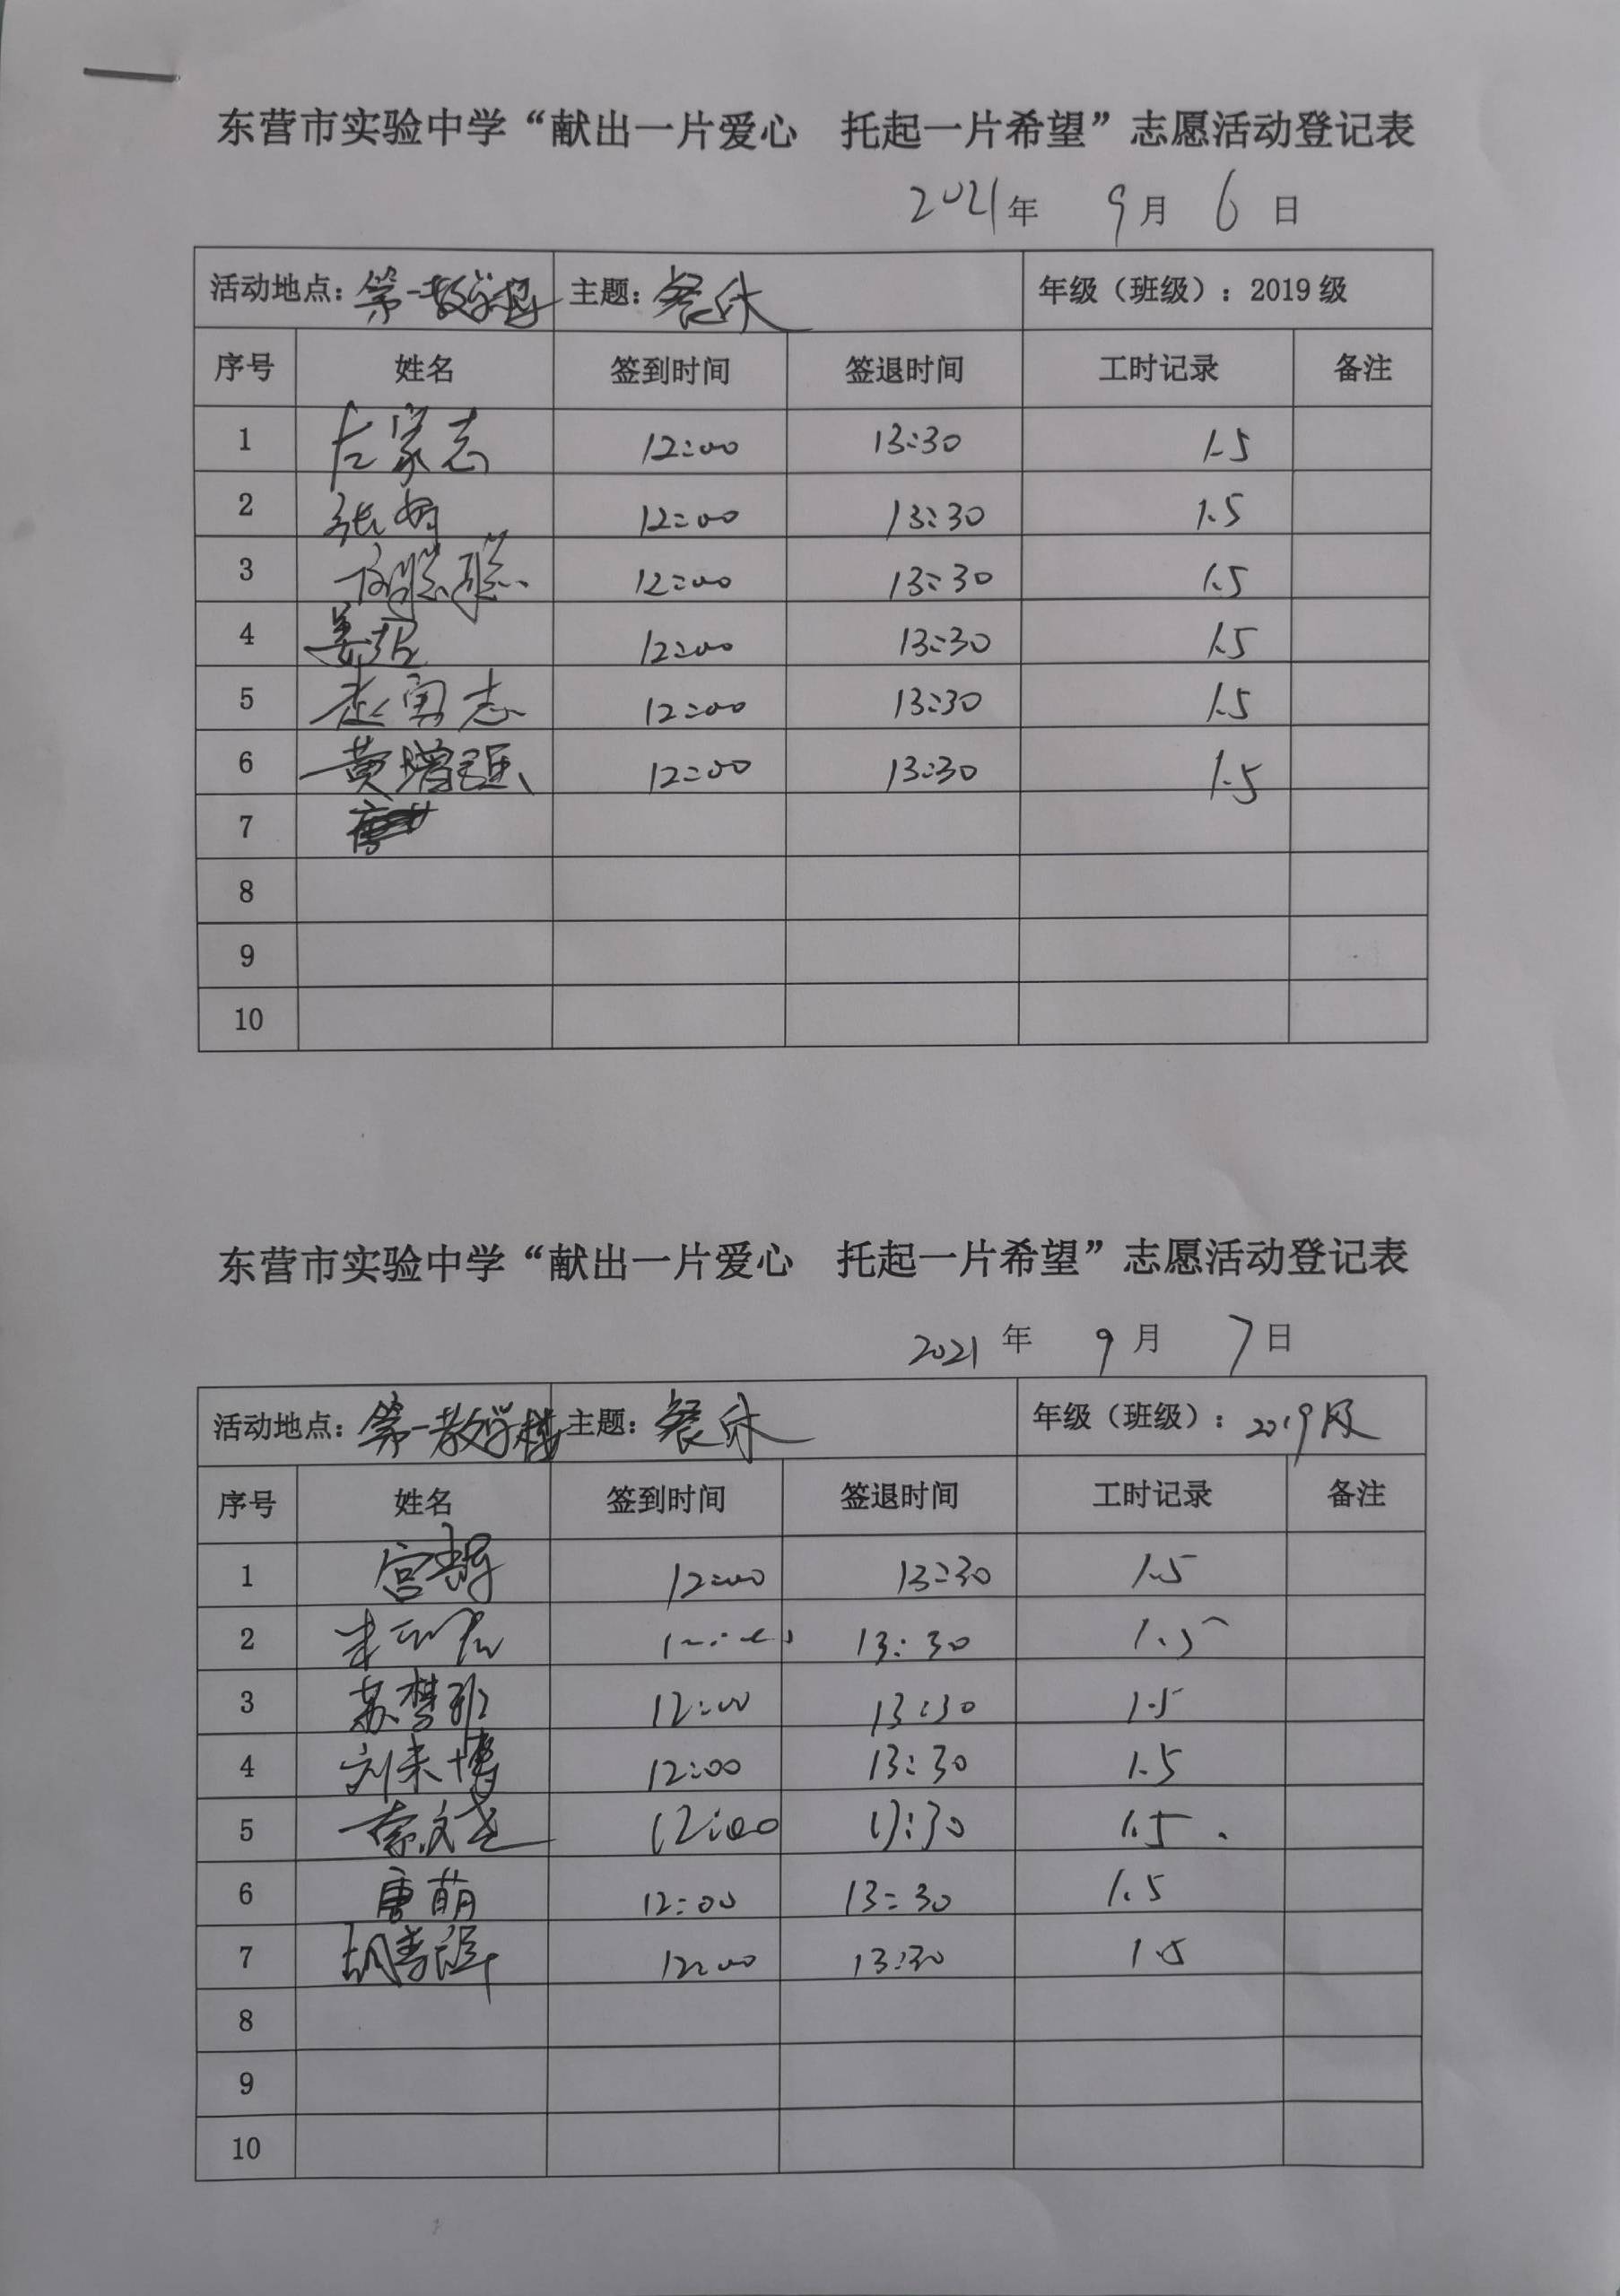 东营市实验中学“献出一片爱心 托起一片希望”志愿活动登记表
2021年 9月 6日
活动地点：第一教学楼 主题：餐休 年级（班级）：2019级
序号 姓名 签到时间 签退时间 工时记录 备注
1 左家志 12:00 13:30 1.5
2 张 12:00 13:30 1.5
3 12:00 13:30 1.5
4 姜 12:00 13:30 1.5
5 赵勇志 12:00 13:30 1.5
6 黄增强 12:00 13:30 1.5
7
8
9
10
东营市实验中学“献出一片爱心 托起一片希望”志愿活动登记表
2021年 9月 7日
活动地点：第一教学楼 主题：餐休 年级（班级）：2019级
序号 姓名 签到时间 签退时间 工时记录 备注
1 宫 12:00 13:30 1.5
2 13:30 1.5
3 苏梦 12:00 13:30 1.5
4 刘来博 12:00 13:30 1.5
5 文 12:00 13:30 1.5
6 唐萌 12:00 13:30 1.5
7 胡 12:00 13:30 1.5
8
9
10